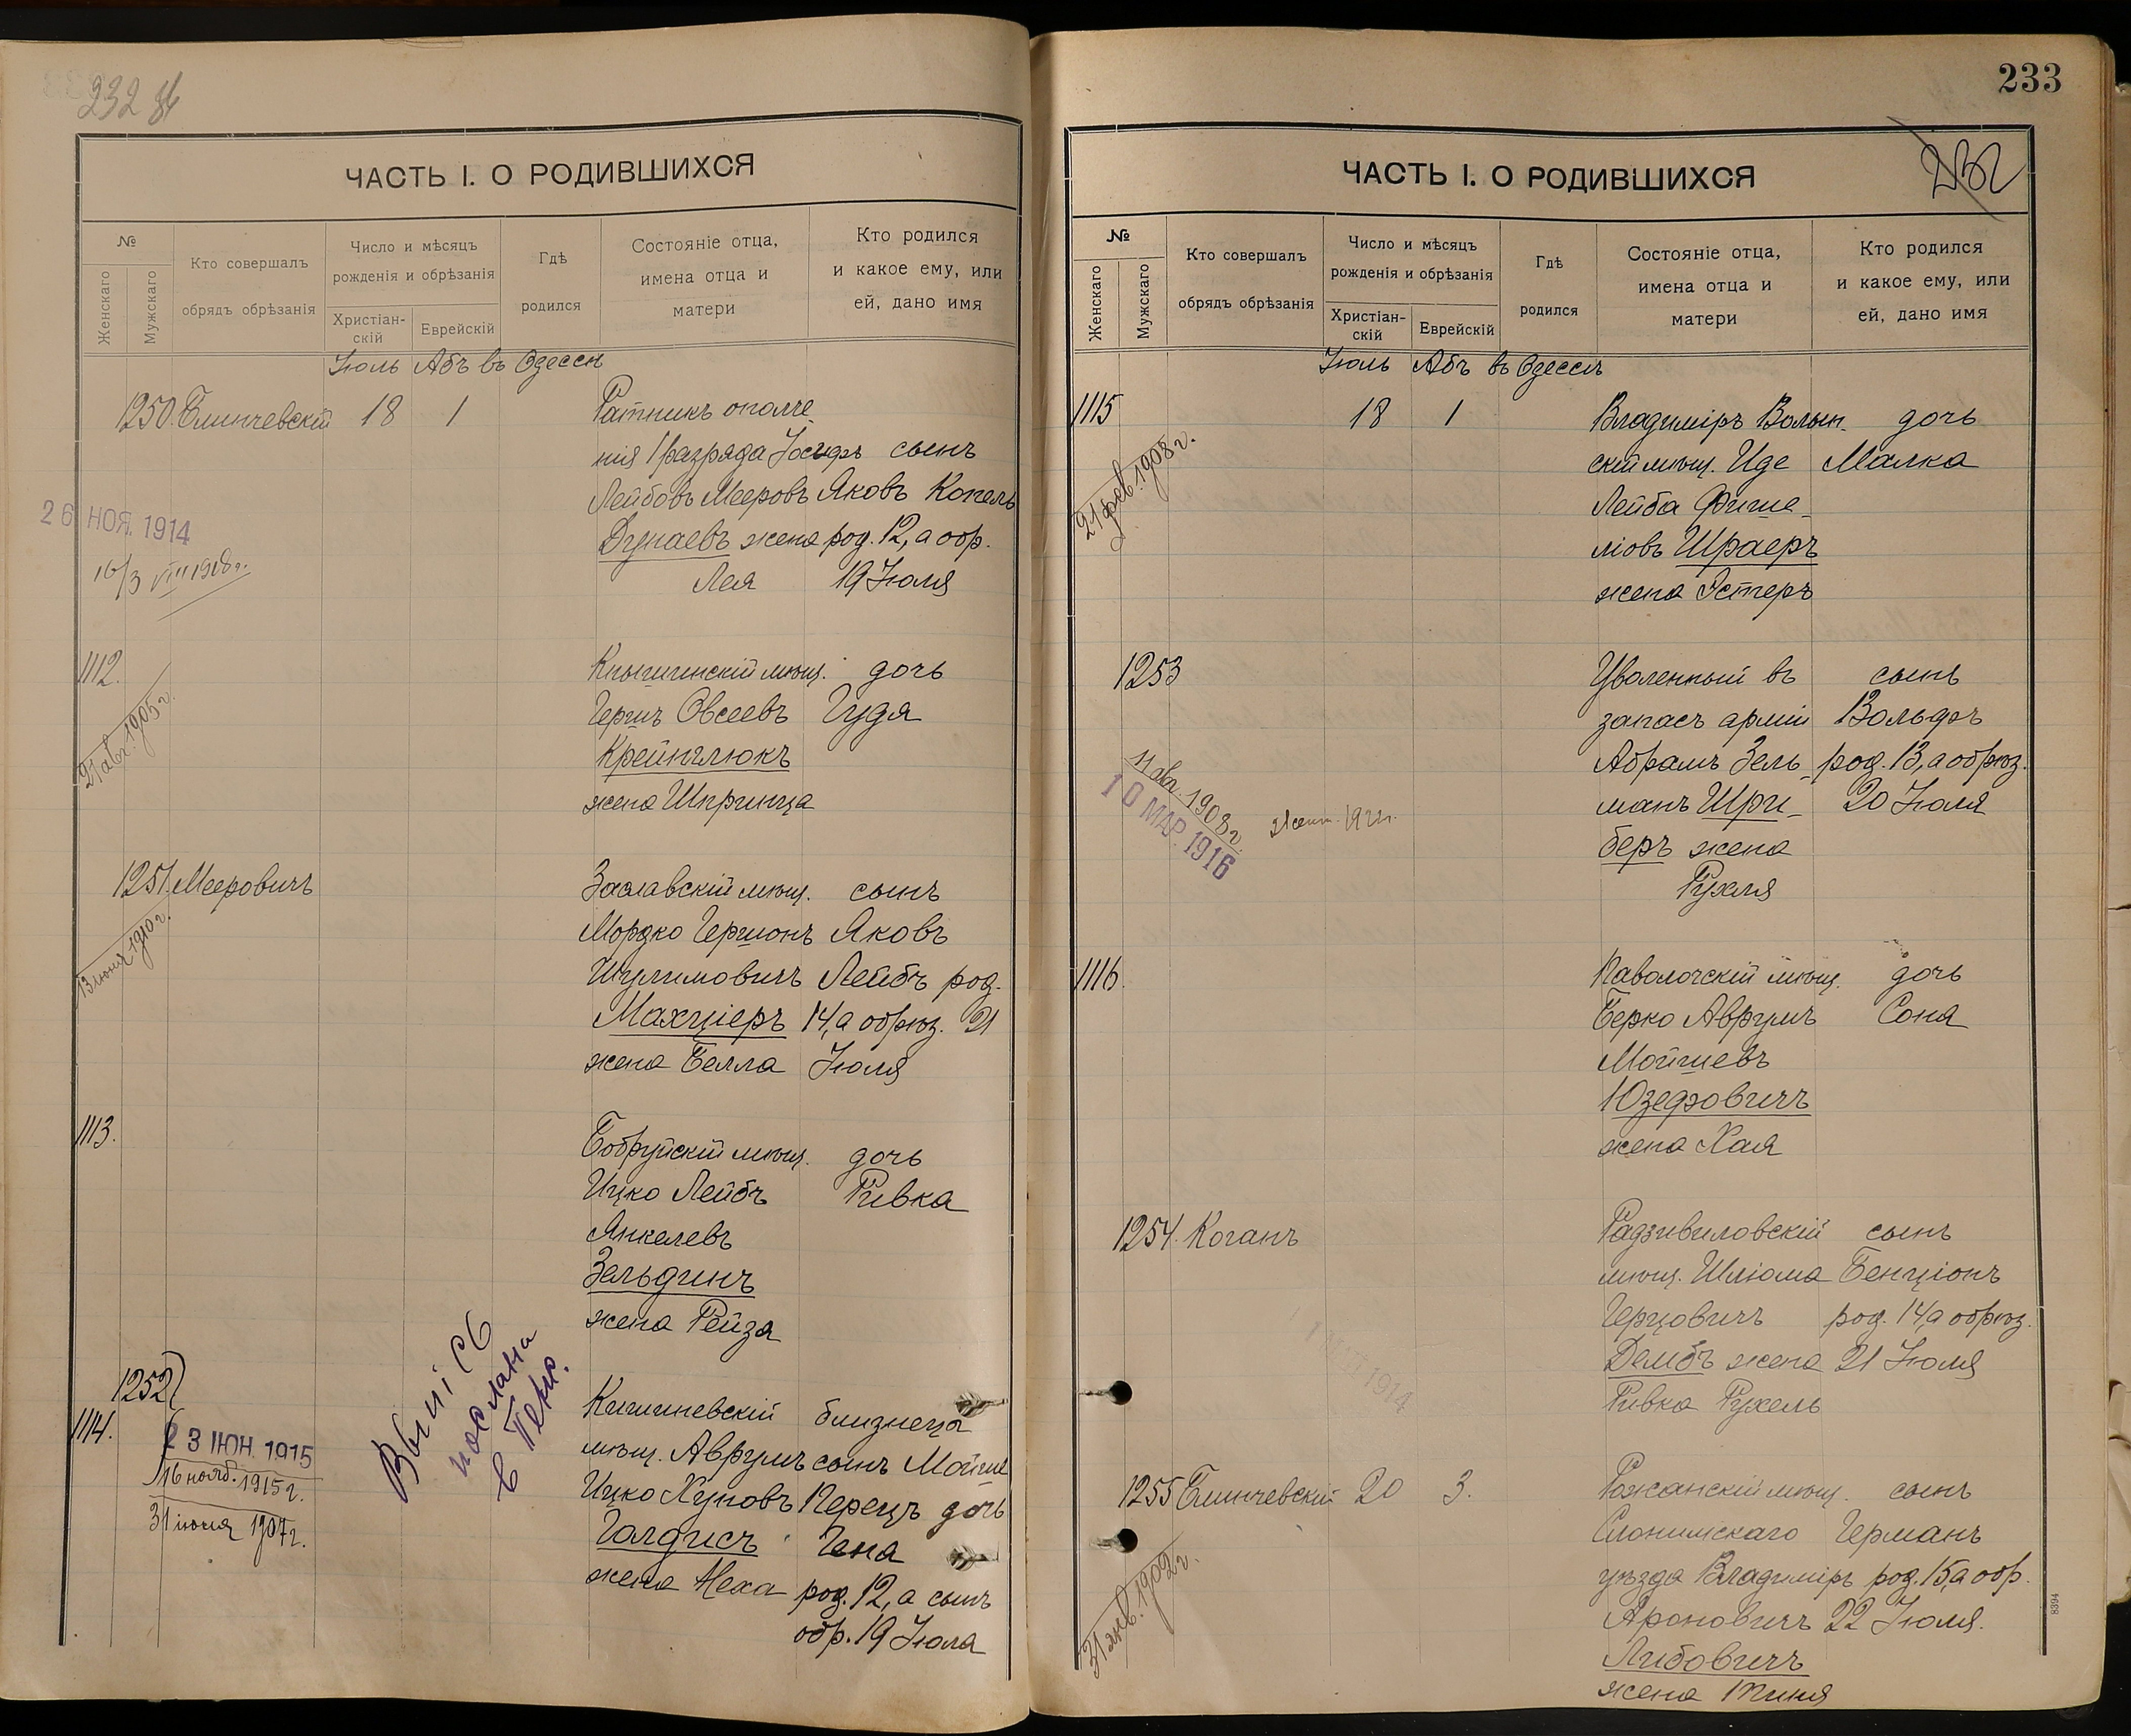 232 об
ЧАСТЬ I. О РОДИВШИХСЯ
№
Женскаго
Мужскаго
Кто совершалъ
обрядъ обрѣзанія
Число и мѣсяцъ
рожденія и обрѣзанія
Христіан-
скій
Еврейскій
Гдѣ
родился
Состояніе отца,
имена отца и
матери
Кто родился
и какое ему, или
ей, дано имя
Іюль Абъ въ Одессѣ
1250. Блинчевскій 18 1
Ратникъ ополче
нія 1 разряда Іосифъ сынъ
Лейбовъ Мееровъ Яковъ Копель
Дунаевъ жена род. 12, а обр.
Лея 19 Іюля
26 НОЯ. 1914
16/3 VIII 1918 г.
1112.
Кнышинскій мѣщ. дочь
Гершъ Овсеевъ Гудя
Крейнглюкъ
жена Шпринца
21 авг. 1905 г.
1251. Мееровичъ
Заславскій мѣщ. сынъ
Мордко Гершонъ Яковъ
Шулимовичъ Лейбъ род.
Махціеръ 14, а обрѣз. 21
жена Белла Іюля
13 іюня 1910 г.
1113.
Бобруйскій мѣщ. дочь
Ицко Лейбъ Ривка
Янкелевъ
Зельдинъ
жена Рейза
1252
1114.
23 ІЮН. 1915
16 нояб. 1915 г.
31 іюля 1907 г.
послана
в
Кишиневскій близнеца
мѣщ. Аврумъ сынъ Мойше
Ицко Хуновъ Перецъ дочь
Голдисъ Гена
жена Неха род. 12, а сынъ
обр. 19 Іюля
233
232
ЧАСТЬ I. О РОДИВШИХСЯ
№
Женскаго
Мужскаго
Кто совершалъ
обрядъ обрѣзанія
Число и мѣсяцъ
рожденія и обрѣзанія
Христіан-
скій
Еврейскій
Гдѣ
родился
Состояніе отца,
имена отца и
матери
Кто родился
и какое ему, или
ей, дано имя
Іюль Абъ въ Одессѣ
1115 18 1
Владиміръ Волын- дочь
скій мѣщ. Иде Малка
Лейба Фише-
ліовъ Шраеръ
жена Эстеръ
21 фев. 1908 г.
1253
Уволенный въ сынъ
запасъ арміи Вольфъ
Абрамъ Зель- род. 13, а обрѣз.
манъ Шри- 20 Іюля
беръ жена
Рухля
1908 г.
10 МАР. 1916
1116.
Паволочскій мѣщ. дочь
Берко Аврумъ Соня
Мойшевъ
Юзефовичъ
жена Хая
1254. Коганъ
Радзивиловскій сынъ
мѣщ. Шліома Бенціонъ
Герцовичъ род. 14, а обрѣз.
Дембъ жена 21 Іюля
Ривка Рухель
1914
1255 Блинчевскій 20 3.
Рожанскій мѣщ. сынъ
Слонимскаго Германъ
уѣзда Владиміръ род. 15, а обр.
Ароновичъ 22 Іюля.
Либовичъ
жена
31 янв. 1902 г.
8394